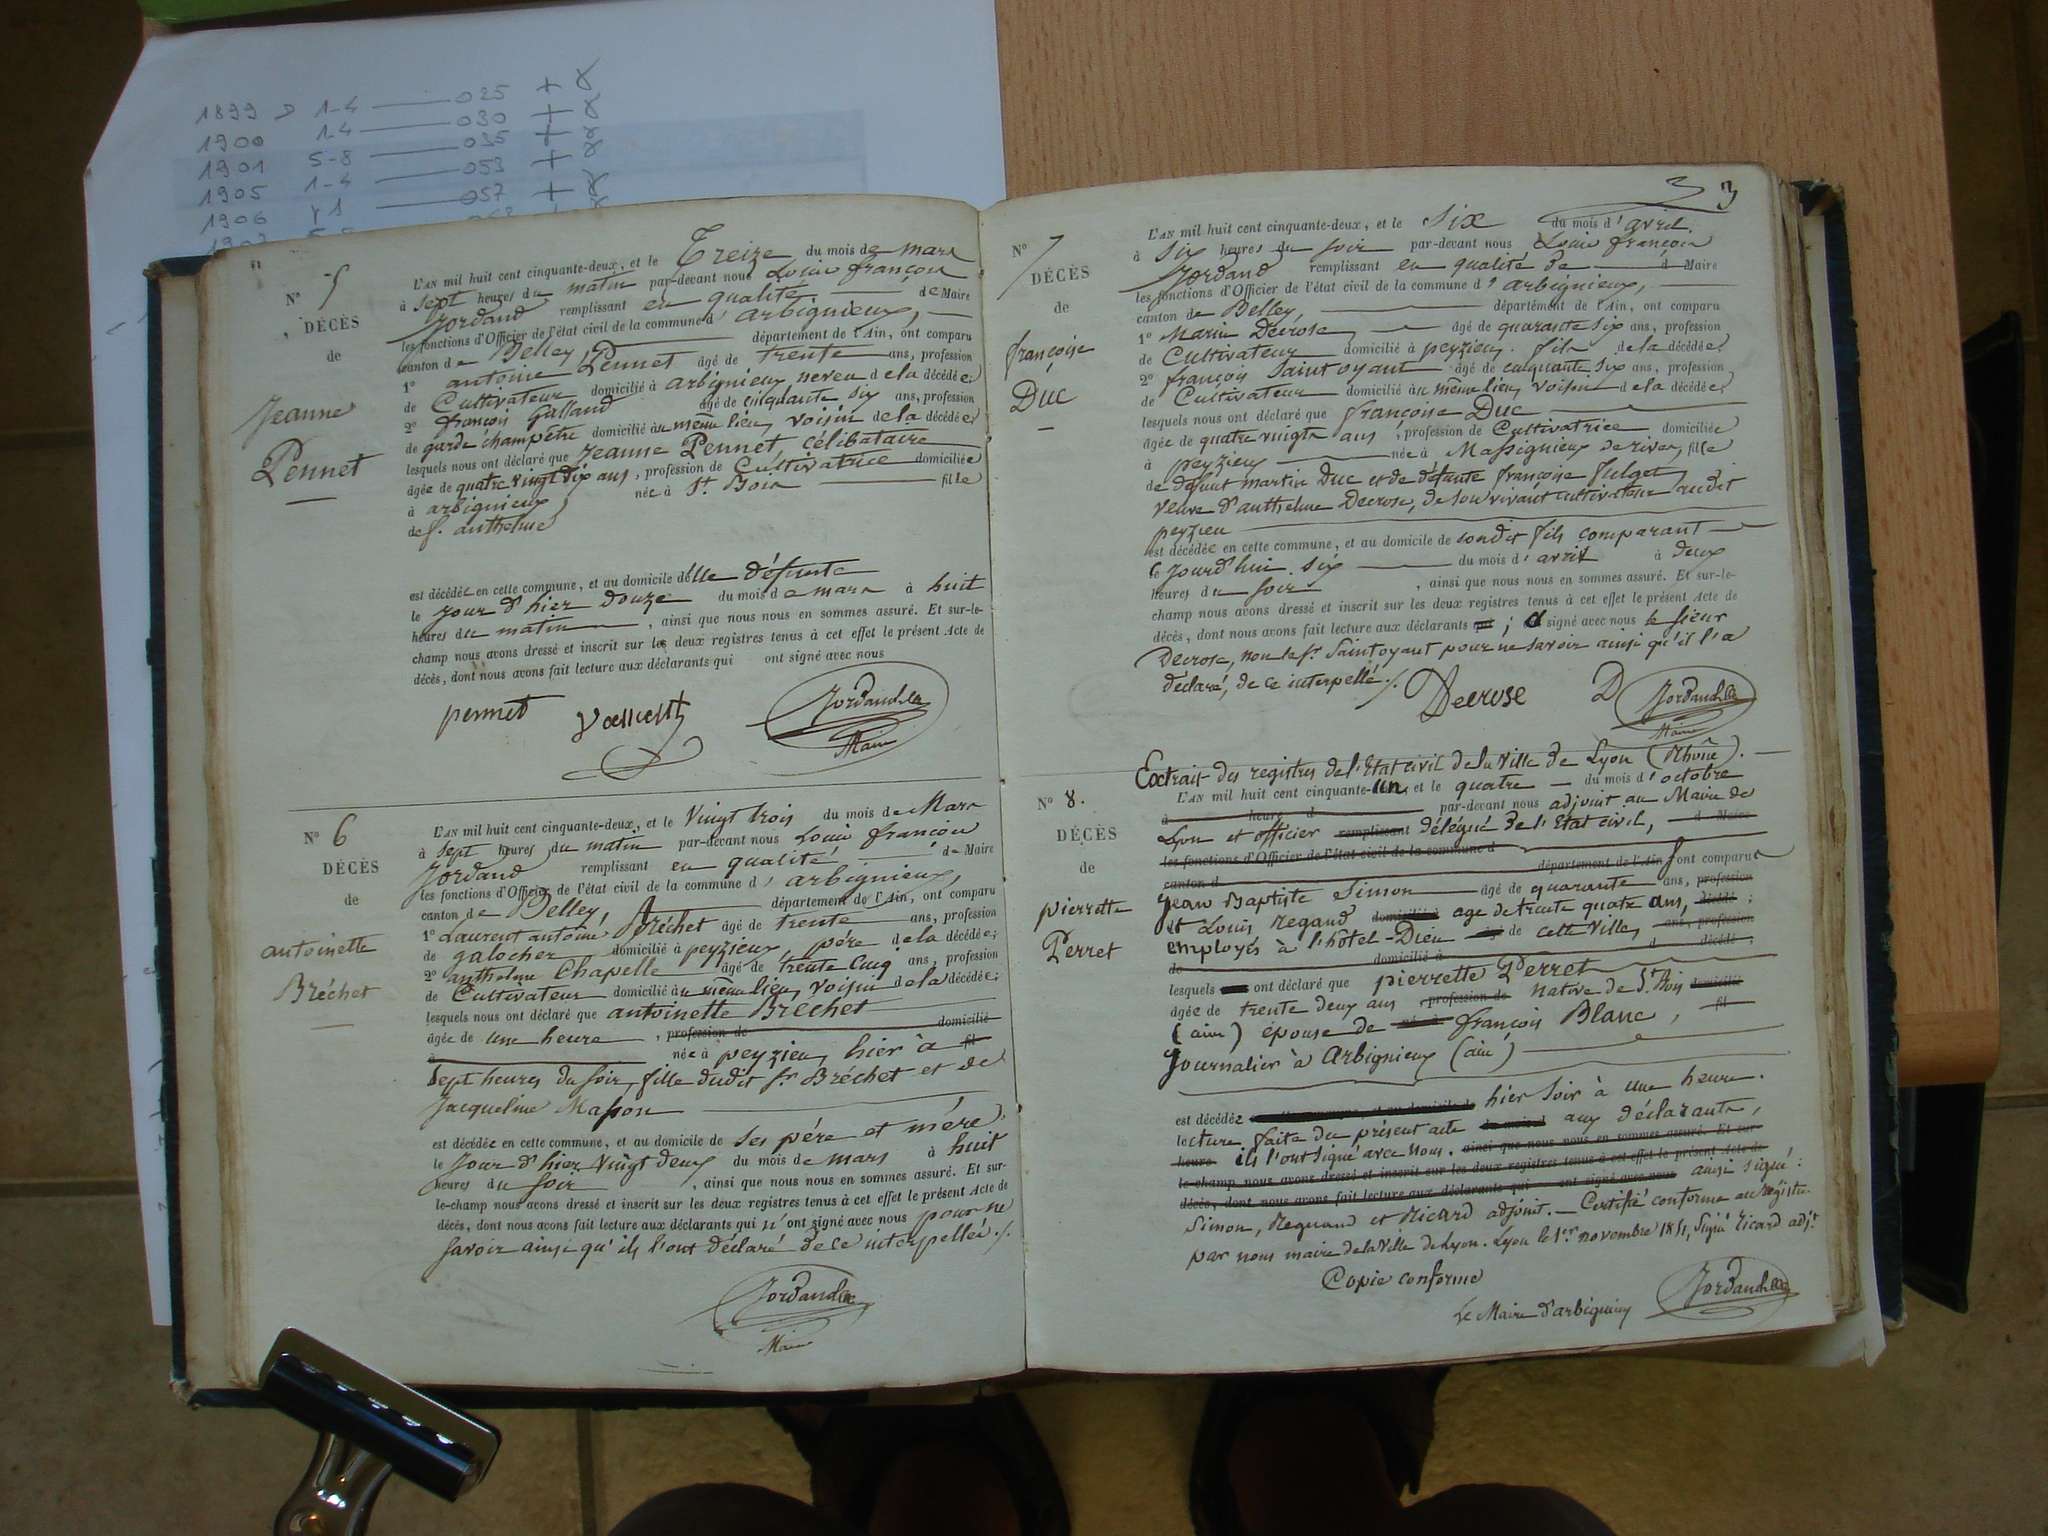 1899 > 1-4 — 025 + α
1900 1-4 — 030 + α
1901 5-8 — 035 + α
1905 1-4 — 053 + α
1906 — 057 + α
N° 5
DÉCÈS
de
Jeanne
Pennet
L'AN mil huit cent cinquante-deux, et le Treize du mois de mars
à sept heures du matin par-devant nous Louis françois
Jordand remplissant en qualité — de Maire
les fonctions d'Officier de l'état civil de la commune d' arbignieux, —
canton de Belley, — département de l'Ain, ont comparu
1° antoine Pennet âgé de trente ans, profession
de Cultivateur domicilié à arbignieux neveu de la décédée;
2° françois Galland âgé de cinquante six ans, profession
de garde champêtre domicilié au même lieu, voisin de la décédée;
lesquels nous ont déclaré que Jeanne Pennet, célibataire
âgée de quatre vingt dix ans, profession de Cultivatrice domiciliée
à arbignieux née à St. Bois — fille
de f. anthelme
est décédée en cette commune, et au domicile d'elle défunte
le jour d'hier douze du mois de mars à huit
heures du matin —, ainsi que nous nous en sommes assuré. Et sur-le-
champ nous avons dressé et inscrit sur les deux registres tenus à cet effet le présent Acte de
décès, dont nous avons fait lecture aux déclarants qui ont signé avec nous
pennet Jordand
Maire
N° 6
DÉCÈS
de
antoinette
Bréchet
L'AN mil huit cent cinquante-deux, et le Vingt trois du mois de Mars
à sept heures du matin par-devant nous Louis françois
Jordand remplissant en qualité — de Maire
les fonctions d'Officier de l'état civil de la commune d' arbignieux,
canton de Belley, — département de l'Ain, ont comparu
1° Laurent antoine Bréchet âgé de trente ans, profession
de galocher domicilié à peyzieux, père de la décédée;
2° anthelme Chapelle âgé de trente cinq ans, profession
de Cultivateur domicilié au même lieu, voisin de la décédée;
lesquels nous ont déclaré que antoinette Bréchet
âgée de une heure, profession de domicilié
à née à peyzieu, hier à fil
sept heures du soir, fille dudit sr. Bréchet et de
Jacqueline Masson —
est décédée en cette commune, et au domicile de ses père et mère,
le jour d'hier vingt deux du mois de mars à huit
heures du soir, ainsi que nous nous en sommes assuré. Et sur-
le-champ nous avons dressé et inscrit sur les deux registres tenus à cet effet le présent Acte de
décès, dont nous avons fait lecture aux déclarants qui n'ont signé avec nous pour ne
savoir ainsi qu'ils l'ont déclaré de ce interpellés./.
Jordand
Maire
3
N° 7
DÉCÈS
de
françoise
Duc
L'AN mil huit cent cinquante-deux, et le Six du mois d'avril
à Six heures du soir par-devant nous Louis françois
Jordand remplissant en qualité de — d Maire
les fonctions d'Officier de l'état civil de la commune d' arbignieux, —
canton de Belley, — département de l'Ain, ont comparu
1° Marin Decrose, — âgé de quarante six ans, profession
de Cultivateur domicilié à peyzieu. fils de la décédée;
2° françois Saintoyant âgé de cinquante six ans, profession
de Cultivateur domicilié au même lieu, voisin de la décédée,
lesquels nous ont déclaré que françoise Duc —
âgée de quatre vingts ans, profession de Cultivatrice domiciliée
à peyzieu — née à Massignieu de rives, fille
de défunt martin Duc et de défunte françoise Julget
veuve d'anthelme Decrose, de son vivant cultivateur audit
peyzieu —
est décédée en cette commune, et au domicile de sondit fils comparant —
le jourd'hui six — du mois d'avril à deux
heures du soir, ainsi que nous nous en sommes assuré. Et sur-le-
champ nous avons dressé et inscrit sur les deux registres tenus à cet effet le présent Acte de
décès, dont nous avons fait lecture aux déclarants; a signé avec nous le sieur
Decrose, non le sr. Saintoyant pour ne savoir ainsi qu'il l'a
déclaré, de ce interpellé./.
Decrose D Jordand
Maire
Extrait des registres de l'Etat civil de la Ville de Lyon (Rhône). —
N° 8.
DÉCÈS
de
pierrette
Perret
L'AN mil huit cent cinquante-un, et le quatre — du mois d'octobre
à heure d par-devant nous adjoint au Maire de
Lyon et officier remplissant délégué de l'Etat civil, — d Maire
les fonctions d'Officier de l'état civil de la commune d
canton d département de l'Ain, ont comparu
Jean Baptiste Simon — âgé de quarante ans, profession
et Louis Regaud domicilié à age de trente quatre ans, décédé;
employés à l'hôtel-Dieu de cette Ville, ans, profession
de domicilié à d décédé;
lesquels ont déclaré que pierrette Perret
âgée de trente deux ans profession de native de St. Bois domicilié
(ain) épouse de né à françois Blanc, fil
journalier à Arbignieux (ain) —
est décédée en cette commune, et au domicile de hier soir à une heure.
lecture faite du présent acte du mois d aux déclarants,
heure ils l'ont signé avec nous. ainsi que nous nous en sommes assuré. Et sur-
le-champ nous avons dressé et inscrit sur les deux registres tenus à cet effet le présent Acte de
décès, dont nous avons fait lecture aux déclarants qui ont signé avec nous ainsi signé:
Simon, Regaud et Ricard adjoint. — Certifié conforme au régistre
par nous maire de la Ville de Lyon. Lyon le 1er novembre 1851, Signé Ricard adjt.
Copie conforme
Le Maire d'arbignieu Jordand